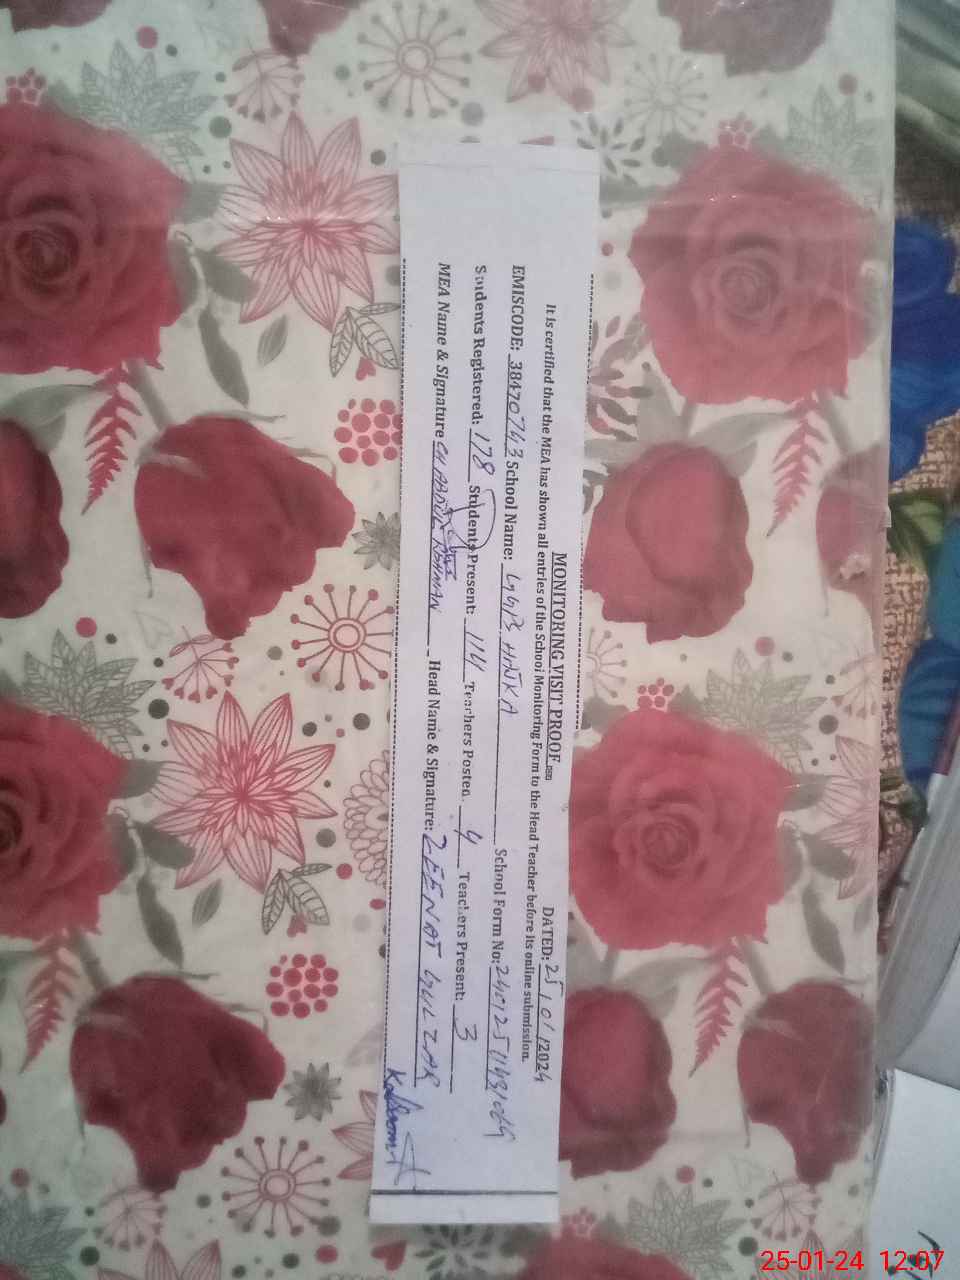 MONITORING VISIT PROOF
DATED: 25/01/2024
It is certified that the MEA has shown all entries of the School Monitoring Form to the Head Teacher before its online submission.
EMISCODE: 38470743 School Name: GGPS HNJKA School Form No:
Students Registered: 178 Students Present: 114 Teachers Posted. 4 Teachers Present: 3
MEA Name & Signature CH ABDUL REHMAN Head Name & Signature: ZEENAT GULZAR
25-01-24 12:07